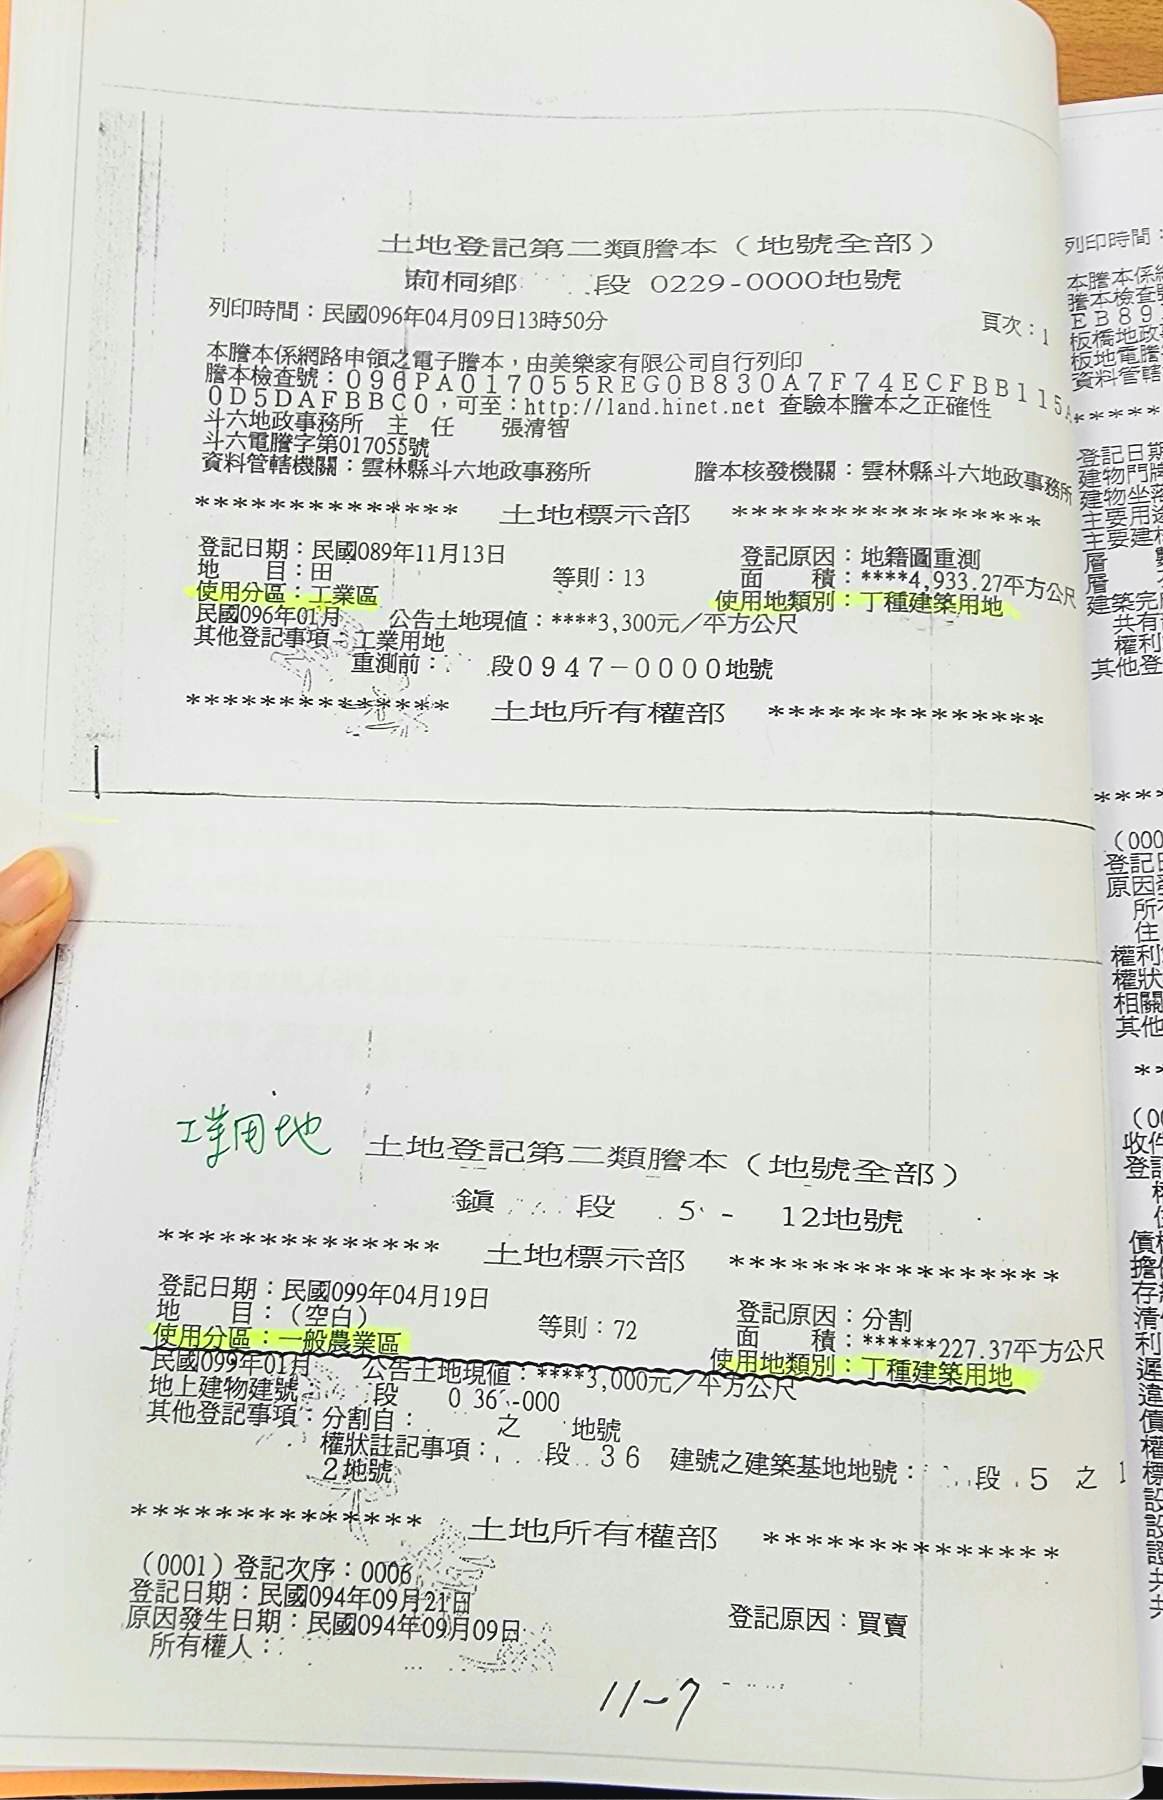 土地登記第二類謄本（地號全部）
莿桐鄉 段 0229-0000地號
列印時間：民國096年04月09日13時50分
頁次：1
本謄本係網路申領之電子謄本，由美樂家有限公司自行列印
謄本檢查號：096PA017055REG0B830A7F74ECFBB115A
0D5DAFBBC0，可至：http://land.hinet.net 查驗本謄本之正確性
斗六地政事務所 主 任 張清智
斗六電謄字第017055號
資料管轄機關：雲林縣斗六地政事務所 謄本核發機關：雲林縣斗六地政事務所
************** 土地標示部 *****************
登記日期：民國089年11月13日 登記原因：地籍圖重測
地 目：田 等則：13 面 積：****4,933.27平方公尺
使用分區：工業區 使用地類別：丁種建築用地
民國096年01月 公告土地現值：****3,300元／平方公尺
其他登記事項：工業用地
重測前： 段0947－0000地號
************** 土地所有權部 ***************
工業用地
土地登記第二類謄本（地號全部）
鎮 段 5 - 12地號
************** 土地標示部 *****************
登記日期：民國099年04月19日 登記原因：分割
地 目：（空白） 等則：72 面 積：******227.37平方公尺
使用分區：一般農業區 使用地類別：丁種建築用地
民國099年01月 公告土地現值：****3,000元／平方公尺
地上建物建號 段 0 36 -000
其他登記事項：分割自： 之 地號
權狀註記事項： 段 36 建號之建築基地地號： 段 5 之 1
2地號
*************** 土地所有權部 ***************
（0001）登記次序：0006
登記日期：民國094年09月21日 登記原因：買賣
原因發生日期：民國094年09月09日
所有權人：
11-7
列印時間：
本謄本係網
謄本檢查號
EB89
板橋地政事
板地電謄
資料管轄
*****
登記日期
建物門牌
建物坐落
主要用途
主要建材
層 數
層
建築完成
共有部
權利
其他登
****
（000
登記日
原因發
所有
住
權利
權狀
相關
其他
**
（00
收件
登記
權
債權
擔保
存續
清償
利
遲
違
債
權
標
設
設
證
共
共